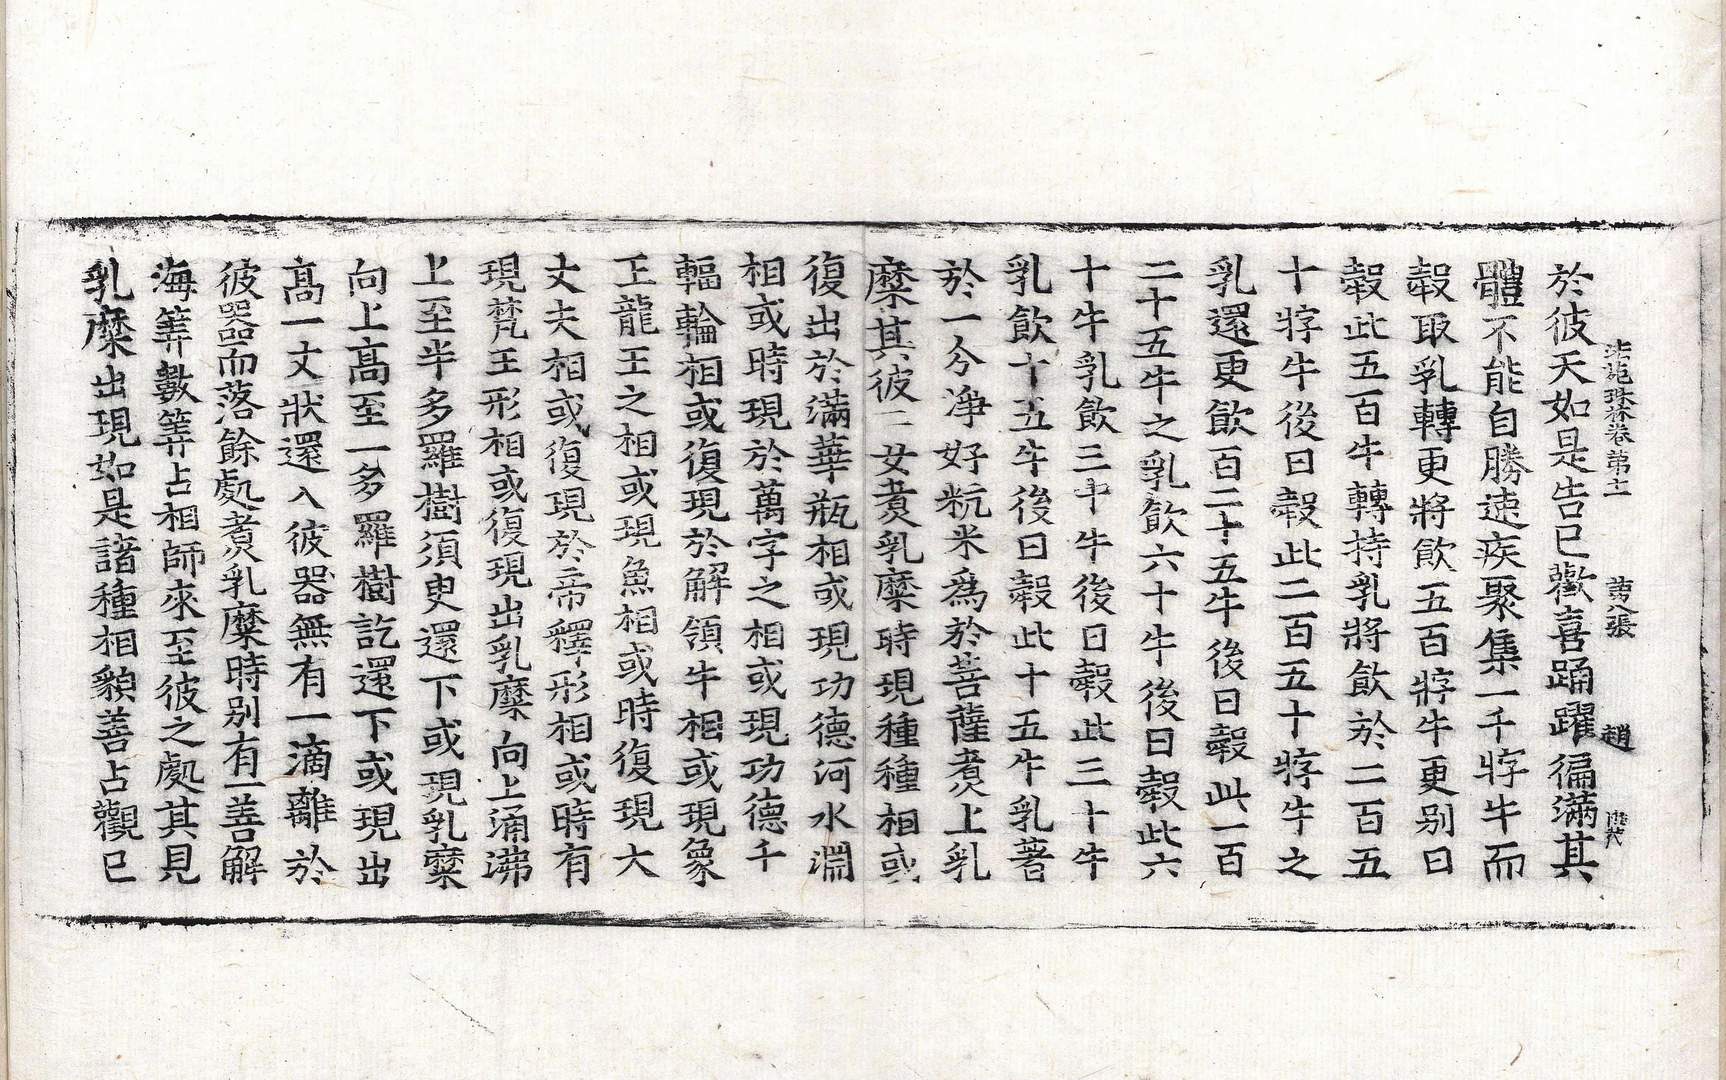 法苑珠林卷第十一 第八張 趙
於彼天如是告已歡喜踊躍徧滿其
體不能自勝速疾聚集一千牸牛而
𣫘取乳轉更將飮五百牸牛更别日
𣫘此五百牛轉持乳將飮於二百五
十牸牛後日𣫘此二百五十牸牛之
乳還更飮百二十五牛後日𣫘此一百
二十五牛之乳飮六十牛後日𣫘此六
十牛乳飮三十牛後日𣫘此三十牛
乳飮十五牛後日𣫘此十五牛乳著
於一分淨好粇米爲於菩薩煑上乳
糜其彼二女煑乳糜時現種種相或
復出於滿華瓶相或現功德河水淵
相或時現於萬字之相或現功德千
輻輪相或復現於解領牛相或現象
王龍王之相或現魚相或時復現大
丈夫相或復現於帝釋形相或時有
現梵王形相或復現出乳糜向上涌沸
上至半多羅樹須臾還下或現乳糜
向上高至一多羅樹訖還下或現出
高一丈狀還入彼器無有一滴離於
彼器而落餘處煑乳糜時别有一善解
海筭數筭占相師來至彼之處其見
乳糜出現如是諸種相貌善占觀已